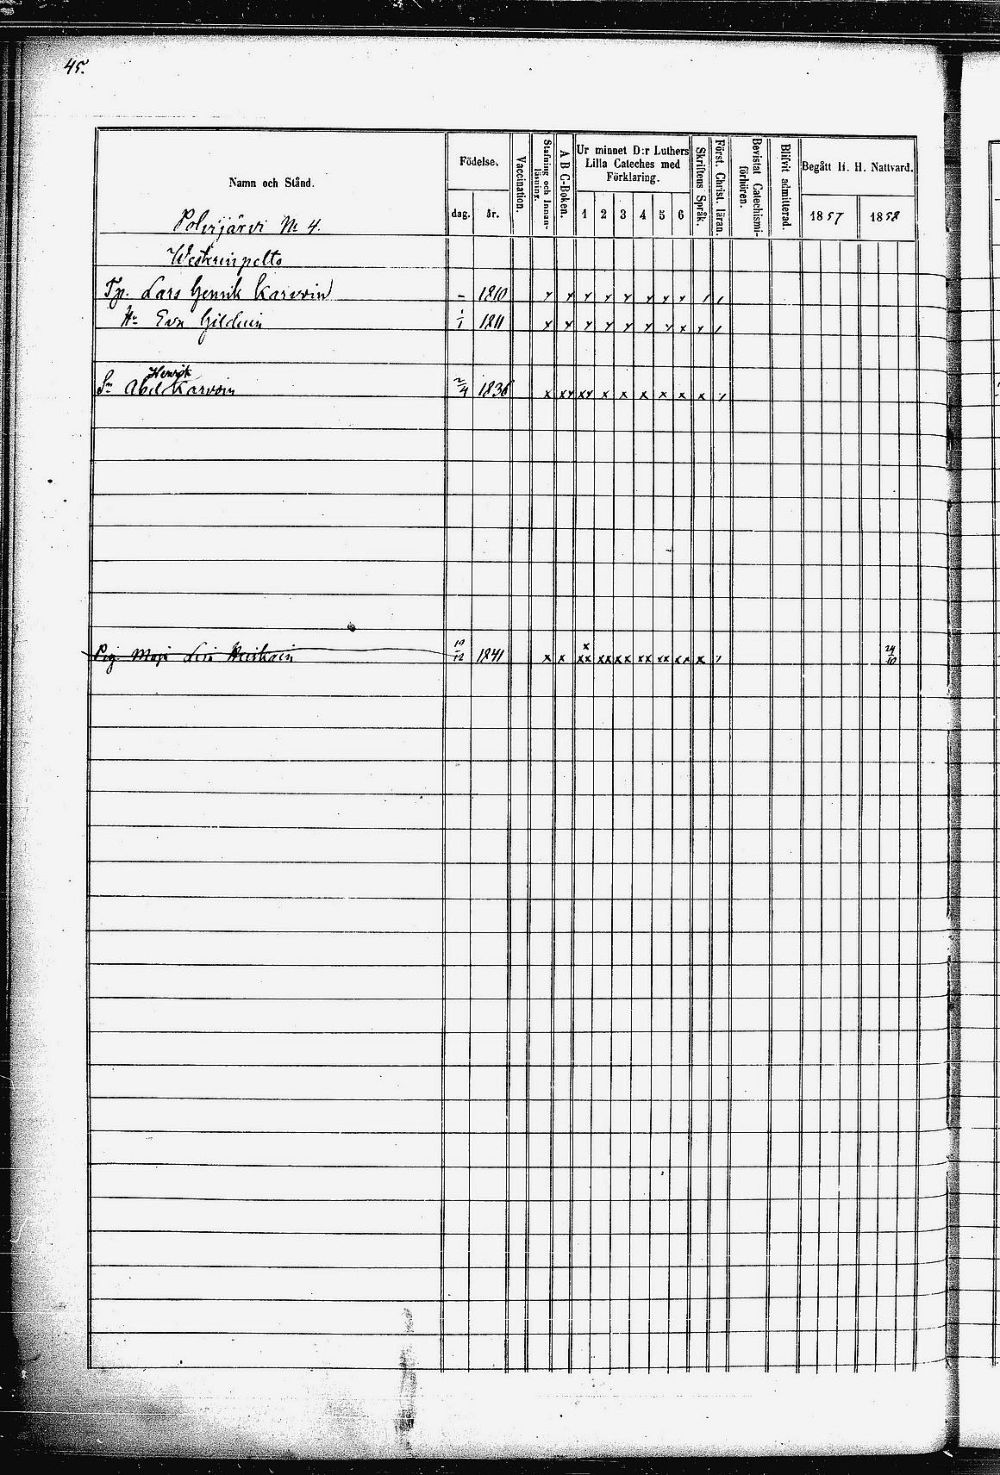 45.
Namn och Stånd.
Födelse.
dag. år.
Vaccination.
Stafning och Innanläsning.
A B C-Boken.
Ur minnet D:r Luthers
Lilla Cateches med
Förklaring.
1 2 3 4 5 6
Skriftens Språk.
Först. Christ. läran.
Bevistat Catechismiförhören.
Blifvit admitterad.
Begått H. H. Nattvard.
1857 1858
Polvijärvi N 4.
Tp. Lars Henrik Karvoin – 1810 x x x x x x x x x / /
Hu Eva 1/1 1811 x x x x x x x x x /
Henrik
Sn Abel Karvoin 2/4 1836 x xx xx x x x x x x /
x
Pig. Maja Lisa 10/12 1841 x x xx xx xx xx xx xx x / 24/10